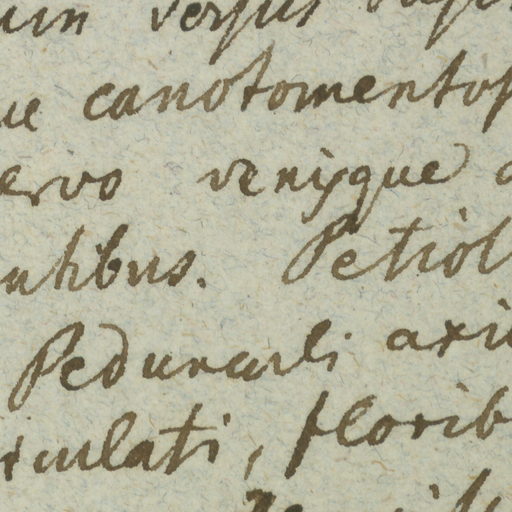 um versus
ue canotomentos
ervo venisque
ntibus. Petiol
Pedunculi axi
iculati, florib